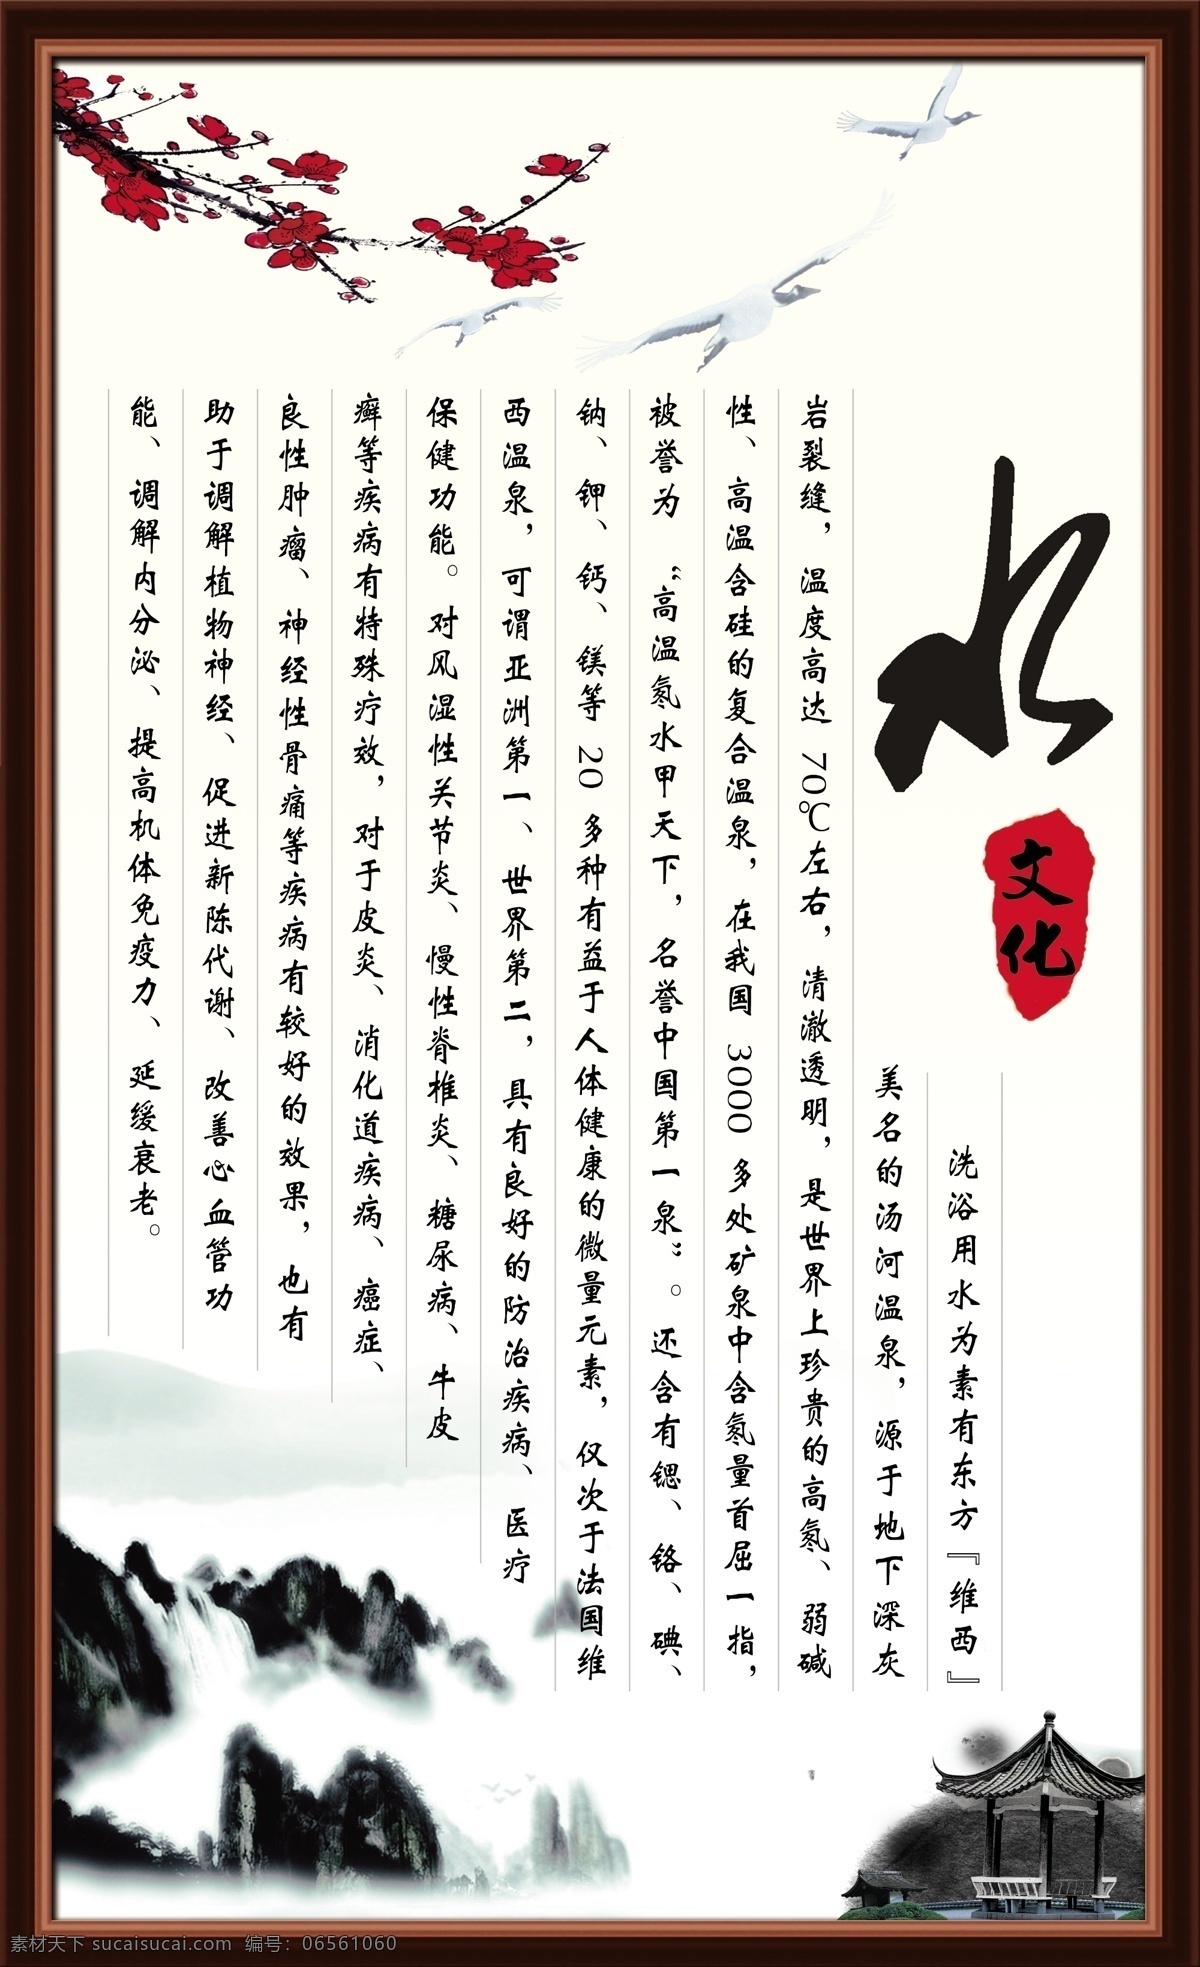 水
文化
洗浴用水为素有东方『维西』
美名的汤河温泉，源于地下深灰
岩裂缝，温度高达 70℃左右，清澈透明，是世界上珍贵的高氡、弱碱
性、高温含硅的复合温泉，在我国 3000 多处矿泉中含氡量首屈一指，
被誉为 “高温氡水甲天下，名誉中国第一泉”。还含有锶、铬、碘、
钠、钾、钙、镁等 20 多种有益于人体健康的微量元素，仅次于法国维
西温泉，可谓亚洲第一、世界第二，具有良好的防治疾病、医疗
保健功能。对风湿性关节炎、慢性脊椎炎、糖尿病、牛皮
癣等疾病有特殊疗效，对于皮炎、消化道疾病、癌症、
良性肿瘤、神经性骨痛等疾病有较好的效果，也有
助于调解植物神经、促进新陈代谢、改善心血管功
能、调解内分泌、提高机体免疫力、延缓衰老。
素材天下 sucaisucai.com 编号：06561060